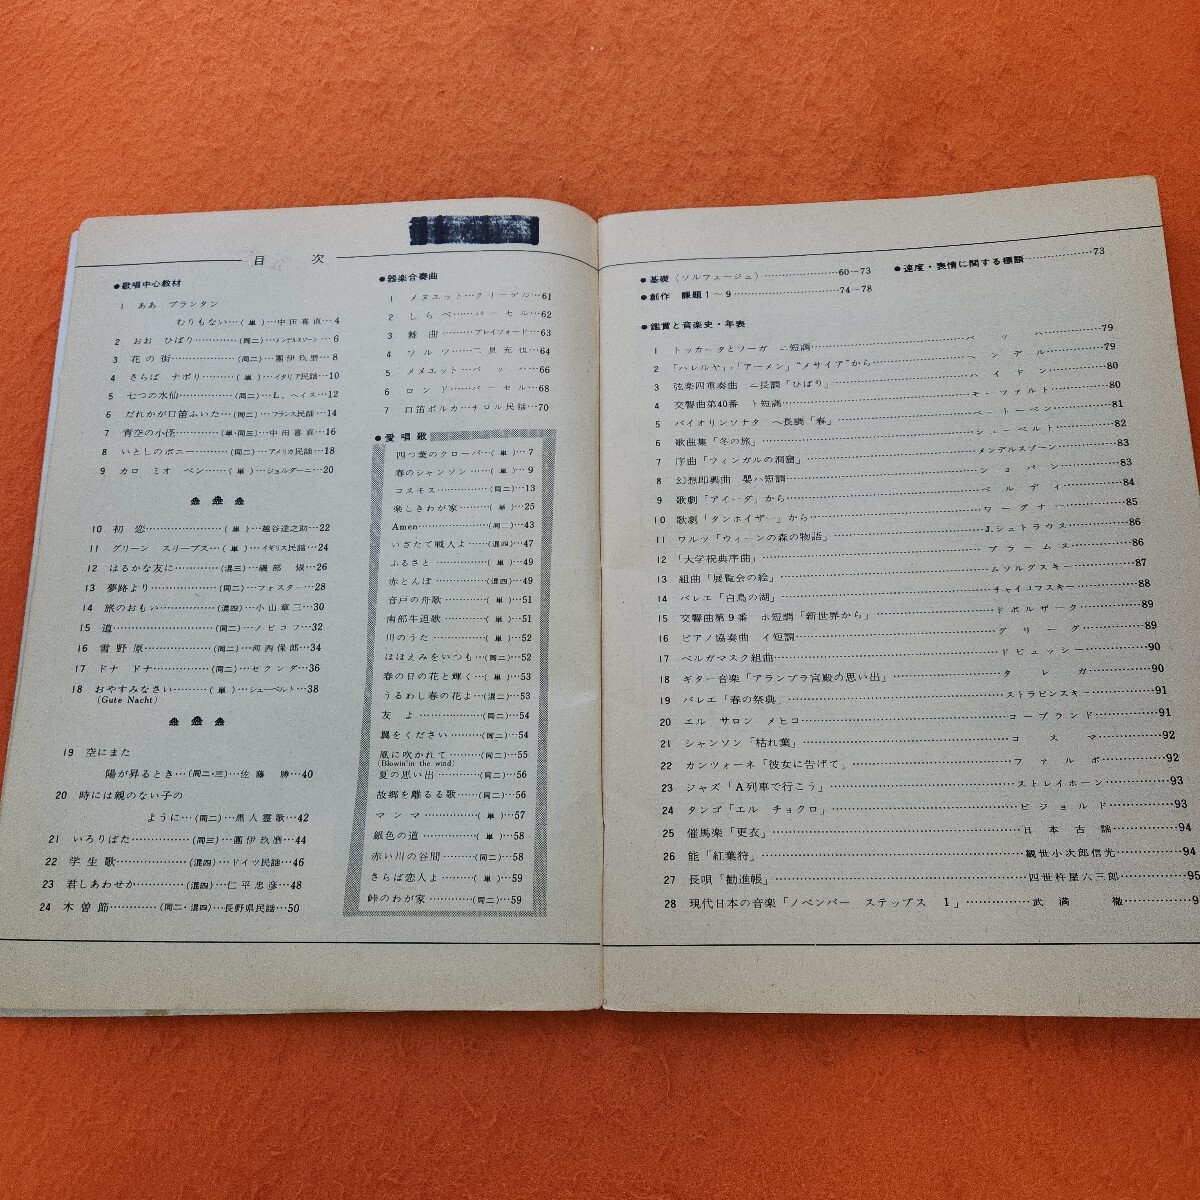 目　次
●歌唱中心教材
1　ああ　プランタン
むりもない…(単)…中田喜直…4
2　おお　ひばり…………(同二)…メンデルスゾーン…6
3　花の街………………(同二)…團伊玖磨…8
4　さらば　ナポリ………(単)…イタリア民謡…10
5　七つの水仙…………(同二)…L．ヘイス…12
6　だれかが口笛ふいた…(同二)…フランス民謡…14
7　青空の小径…………(単・同三)…中田喜直…16
8　いとしのポニー………(同二)…アメリカ民謡…18
9　カロ　ミオ　ベン……(単)…ジョルダーニ…20
10　初　恋………………(単)…越谷達之助…22
11　グリーン　スリーブス…(単)…イギリス民謡…24
12　はるかな友に…………(混三)…磯部　俶…26
13　夢路より………………(同二)…フォスター…28
14　旅のおもい……………(混四)…小山章三…30
15　道……………………(同二)…ノビコフ…32
16　雪野原………………(同二)…河西保郎…34
17　ドナ　ドナ……………(同二)…セクンダ…36
18　おやすみなさい………(単)…シューベルト…38
(Gute Nacht)
19　空にまた
陽が昇るとき…(同二・三)…佐藤　勝…40
20　時には親のない子の
ように…(同二)…黒人霊歌…42
21　いろりばた……………(同三)…團伊玖磨…44
22　学生歌………………(混四)…ドイツ民謡…46
23　君しあわせか…………(混四)…仁平忠彦…48
24　木曽節…………(同二・混四)…長野県民謡…50
●器楽合奏曲
1　メヌエット…クリーゲル…61
2　しらべ……パーセル…62
3　舞曲………プレイフォード…63
4　ワルツ……二見充也…64
5　メヌエット……バッハ…66
6　ロンド……パーセル…68
7　口笛ポルカ…チロル民謡…70
●愛唱歌
四つ葉のクローバ…(単)…7
春のシャンソン……(単)…9
コスモス…………(同二)…13
楽しきわが家………(単)…25
Amen………………(同二)…43
いざたて戦人よ……(混四)…47
ふるさと……………(単)…49
赤とんぼ……………(混四)…49
音戸の舟歌…………(単)…51
南部牛追歌…………(単)…51
川のうた……………(単)…52
ほほえみをいつも…(同二)…52
春の日の花と輝く…(単)…53
うるわし春の花よ…(混二)…53
友　よ………………(同二)…54
翼をください………(同二)…54
風に吹かれて………(同二)…55
(Blowin'in the wind)
夏の思い出…………(同二)…56
故郷を離るる歌……(同二)…56
マンマ………………(単)…57
銀色の道……………(単)…58
赤い川の谷間………(同二)…58
さらば恋人よ………(単)…59
峠のわが家…………(同二)…59
●基礎（ソルフェージュ）………………60〜73
●創作　課題1〜9………………………74〜78
●速度・表情に関する標語……………73
●鑑賞と音楽史・年表
1　トッカータとフーガ　ニ短調………………バッハ……79
2　「ハレルヤ」・「アーメン」"メサイア"から………ヘンデル……79
3　弦楽四重奏曲　ニ長調「ひばり」………ハイドン……80
4　交響曲第40番　ト短調………モーツァルト……80
5　バイオリンソナタ　ヘ長調「春」………ベートーベン……81
6　歌曲集「冬の旅」………シューベルト……82
7　序曲「フィンガルの洞窟」………メンデルスゾーン……82
8　幻想即興曲　嬰ハ短調………ショパン……83
9　歌劇「アイーダ」から………ベルディ……84
10　歌劇「タンホイザー」から………ワーグナー……85
11　ワルツ「ウィーンの森の物語」………J.シュトラウス……86
12　「大学祝典序曲」………ブラームス……86
13　組曲「展覧会の絵」………ムソルグスキー……87
14　バレエ「白鳥の湖」………チャイコフスキー……88
15　交響曲第9番　ホ短調「新世界から」………ドボルザーク……89
16　ピアノ協奏曲　イ短調………グリーグ……89
17　ベルガマスク組曲………ドビュッシー……90
18　ギター音楽「アランブラ宮殿の思い出」………タレガ……90
19　バレエ「春の祭典」………ストラビンスキー……91
20　エル　サロン　メヒコ………コープランド……91
21　シャンソン「枯れ葉」………コスマ……92
22　カンツォーネ「彼女に告げて」………ファルボ……92
23　ジャズ「A列車で行こう」………ストレイホーン……93
24　タンゴ「エル　チョクロ」………ビジョルド……93
25　催馬楽「更衣」………日本古謡……94
26　能「紅葉狩」………観世小次郎信光……94
27　長唄「勧進帳」………四世杵屋六三郎……95
28　現代日本の音楽「ノベンバー　ステップス　1」………武満　徹……9